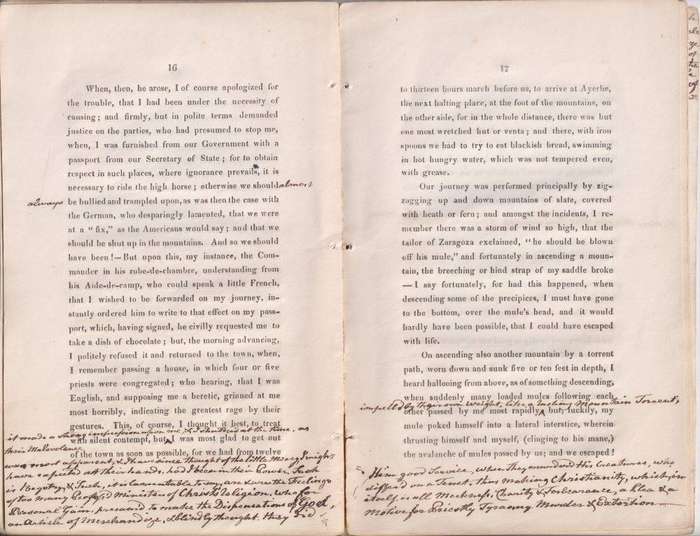 16
When, then, he arose, I of course apologized for
the trouble, that I had been under the necessity of
causing; and firmly, but in polite terms demanded
justice on the parties, who had presumed to stop me,
when, I was furnished from our Government with a
passport from our Secretary of State; for to obtain
respect in such places, where ignorance prevails, it is
necessary to ride the high horse; otherwise we should almost
always be bullied and trampled upon, as was then the case with
the German, who despairingly lamented, that we were
at a "fix," as the Americans would say; and that we
should be shut up in the mountains. And so we should
have been!—But upon this, my instance, the Com-
mander in his robe-de-chambre, understanding from
his Aide-de-camp, who could speak a little French,
that I wished to be forwarded on my journey, in-
stantly ordered him to write to that effect on my pass-
port, which, having signed, he civilly requested me to
take a dish of chocolate; but, the morning advancing,
I politely refused it and returned to the town, when,
I remember passing a house, in which four or five
priests were congregated; who hearing, that I was
English, and supposing me a heretic, grinned at me
most horribly, indicating the greatest rage by their
gestures. This, of course, I thought it best, to treat
it made a strong impression upon me, & I shuddered at the time, as
with silent contempt, but I was most glad to get out
their Malevolence
of the town as soon as possible, for we had twelve
was most apparent, & I have since thought of the little Mercy I might
have expected at their hands, had I been in their Power. Such
is Bigotry, & Such, it is Lamentable to say, are & were the Feelings
of too many Professed Ministers of Christ's Religion, who for
Personal Gain, presumed to make the Dispensations of God,
an Article of Merchandize, & blind by thought. they did
17
to thirteen hours march before us, to arrive at Ayerbe,
the next halting place, at the foot of the mountains, on
the other side, for in the whole distance, there was but
one most wretched hut or venta; and there, with iron
spoons we had to try to eat blackish bread, swimming
in hot hungry water, which was not tempered even,
with grease.
Our journey was performed principally by zig-
zagging up and down mountains of slate, covered
with heath or fern; and amongst the incidents, I re-
member there was a storm of wind so high, that the
tailor of Zaragoza exclaimed, "he should be blown
off his mule," and fortunately in ascending a moun-
tain, the breeching or hind strap of my saddle broke
—I say fortunately, for had this happened, when
descending some of the precipices, I must have gone
to the bottom, over the mule's head, and it would
hardly have been possible, that I could have escaped
with life.
On ascending also another mountain by a torrent
path, worn down and sunk five or ten feet in depth, I
heard hallooing from above, as of something descending,
when suddenly many loaded mules following each
impelled by their own weight, like a rushing Mountain Torrent,
other passed by me most rapidly, but luckily, my
mule poked himself into a lateral interstice, wherein
thrusting himself and myself, (clinging to his mane,)
the avalanche of mules passed by us; and we escaped!
Him good Service, when They murdered His Creatures, who
differed on a Tenet, thus making Christianity, which in
itself is all Meekness, Charity & Forbearance, a Plea & a
Motive for Priestly Tyranny Murder & Extortion—